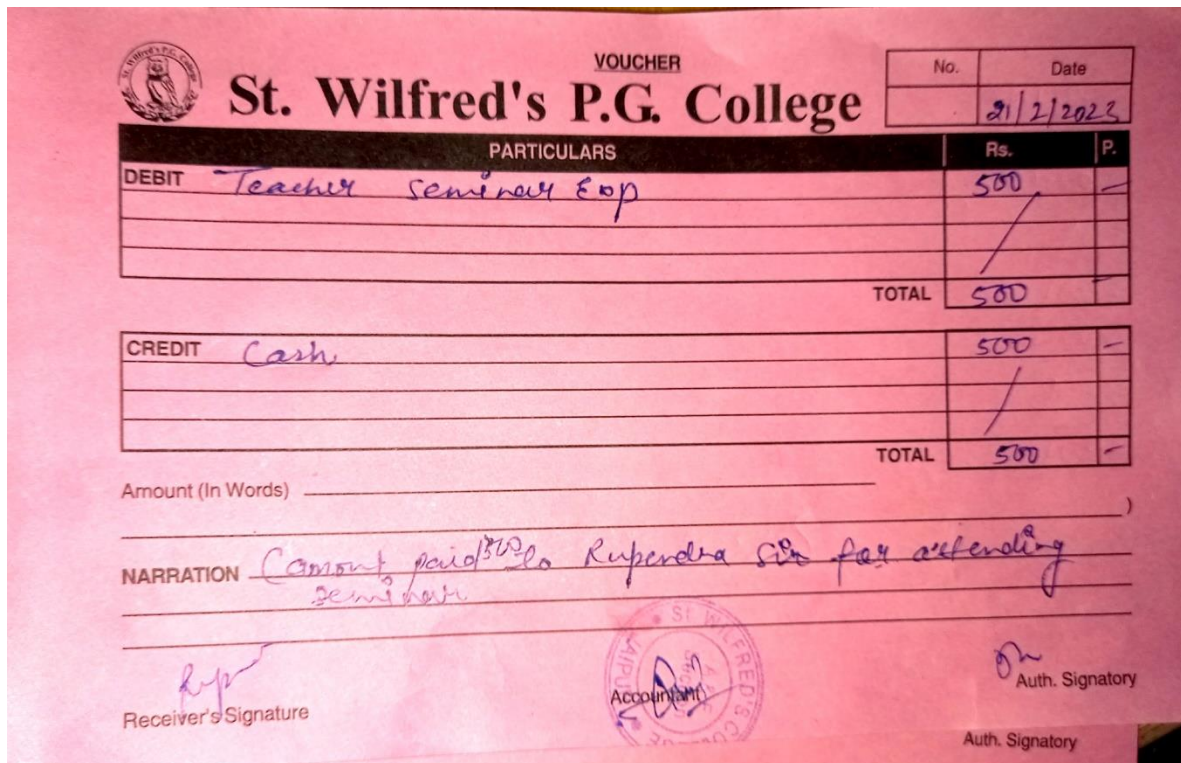 VOUCHER
St. Wilfred's P.G. College
St. Wilfred's P.G. College
No. Date
21/2/2023
PARTICULARS Rs. P.
DEBIT Teacher seminar Exp 500 -
TOTAL 500 -
CREDIT Cash 500 -
TOTAL 500 -
Amount (In Words)
)
NARRATION (amont paid 500 to Rupendra Sir for attending
seminar
St WILFRED'S COLLEGE JAIPUR
Receiver's Signature
Accountant
Auth. Signatory
Auth. Signatory